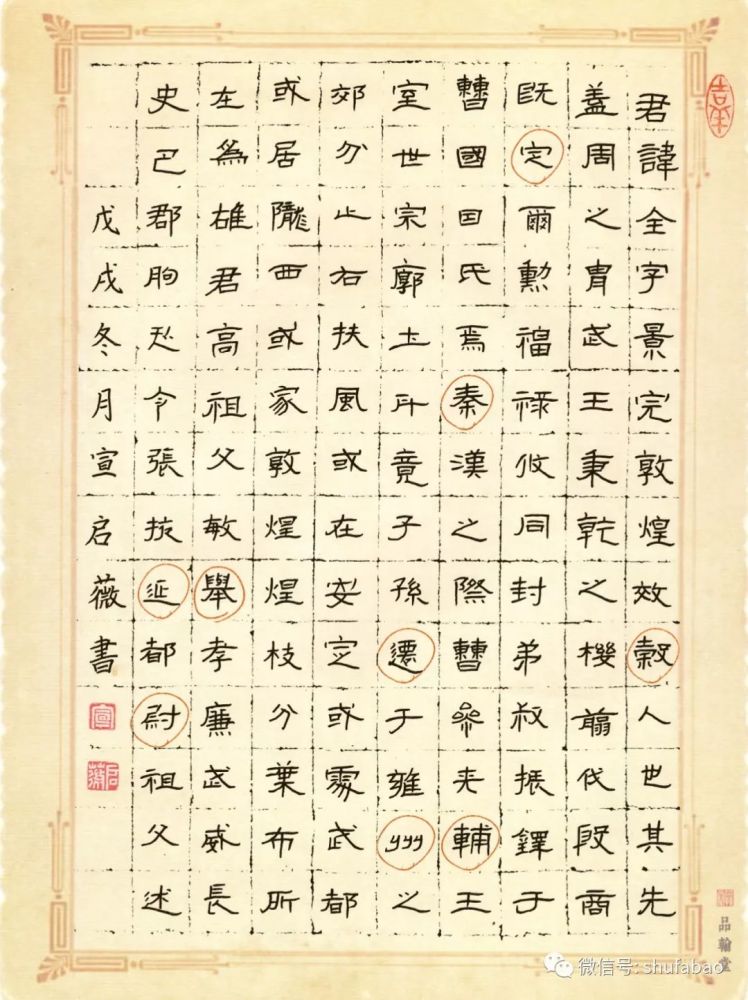 君諱全字景完敦煌效穀人世其先
蓋周之胄武王秉乾之機翦伐殷商
既定爾勳福祿攸同封弟叔振鐸于
曹國因氏焉秦漢之際曹參夾輔王
室世宗廓土斥竟子孫遷于雍州之
郊分止右扶風或在安定或處武都
或居隴西或家敦煌煌枝分葉布所
在為雄君高祖父敏舉孝廉武威長
史巴郡朐忍令張掖延都尉祖父述
戊戌冬月宣启薇書
吉羊
宣
启薇
品翰堂
微信号: shufabao